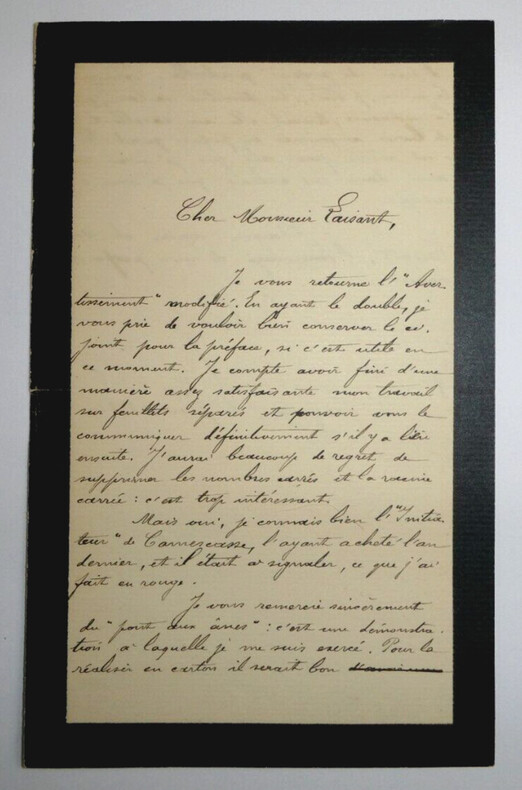 Cher Monsieur Laisant,
Je vous retourne l'"Aver-
tissement" modifié. En ayant le double, je
vous prie de vouloir bien conserver le ci.
joint pour la préface, si c'est utile en
ce moment. Je compte avoir fini d'une
manière assez satisfaisante mon travail
sur feuillets séparés et pouvoir vous le
communiquer définitivement s'il y a lieu
ensuite. J'aurai beaucoup de regret de
supprimer les nombres carrés et la racine
carrée : c'est trop intéressant.
Mais oui, je connais bien l'"Initia-
teur" de Camescasse, l'ayant acheté l'an
dernier, et il était à signaler, ce que j'ai
fait en rouge.
Je vous remercie sincèrement
du "pont aux ânes" : c'est une démonstra-
tion à laquelle je me suis exercé. Pour la
réaliser en carton il serait bon